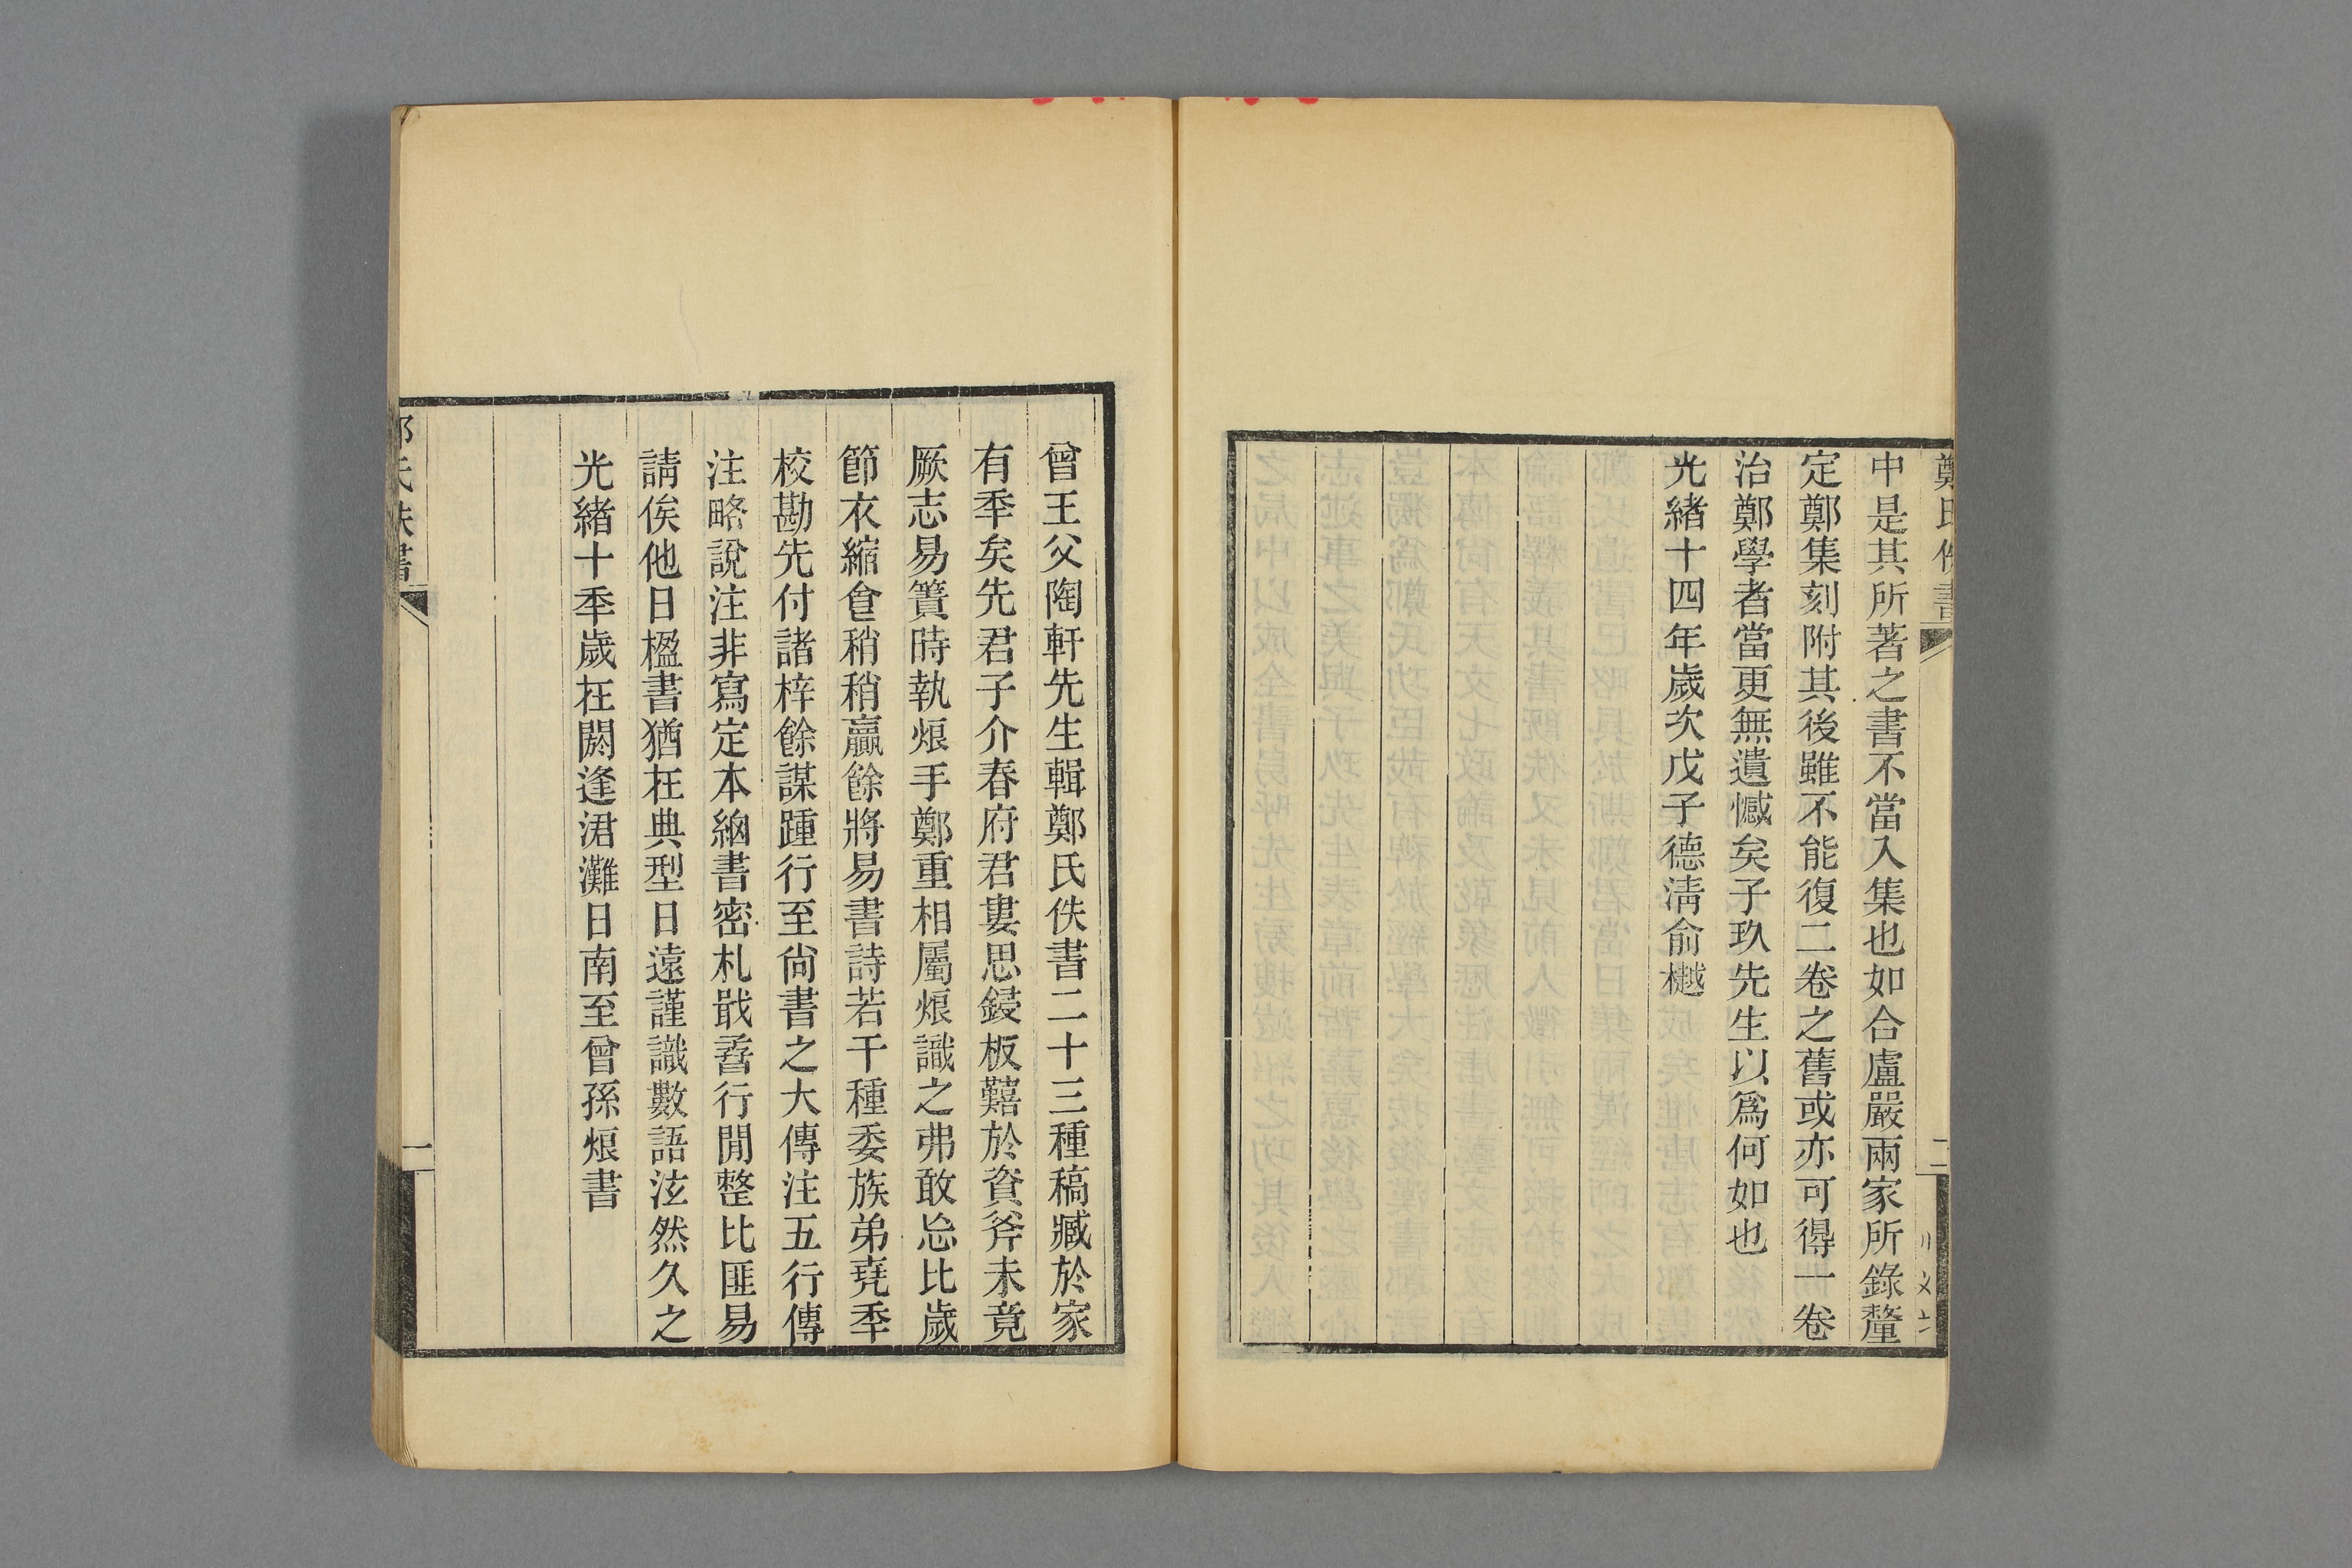 鄭氏佚書
二
中是其所著之書不當入集也如合盧嚴兩家所錄釐
定鄭集刻附其後雖不能復二卷之舊或亦可得一卷
治鄭學者當更無遺憾矣子玖先生以爲何如也
光緒十四年歲次戊子德淸俞樾
曾王父陶軒先生輯鄭氏佚書二十三種稿臧於家
有秊矣先君子介春府君婁思鋟板囏於資斧未竟
厥志易簀時執烺手鄭重相屬烺識之弗敢忘比歲
節衣縮食稍稍贏餘將易書詩若干種委族弟堯秊
校勘先付諸梓餘謀踵行至尙書之大傳注五行傳
注略說注非寫定本紬書密札戢孴行閒整比匪易
請俟他日楹書猶在典型日遠謹識數語泫然久之
光緒十秊歲在閼逢涒灘日南至曾孫烺書
氏佚書
一